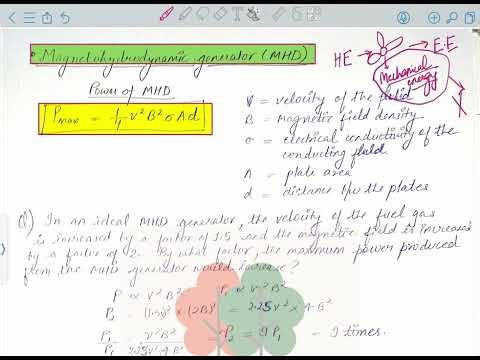 Magnetohydrodynamic generator (MHD)
HE → E.E
Mechanical
energy
X
Power of MHD
Pmax = 1/4 v²B²σAd
V = velocity of the fluid
B = Magnetic field density
σ = electrical conductivity of the
conducting fluid
A = plate area
d = distance b/w the plates
Q) In an ideal MHD generator, the velocity of the fuel gas
is increased by a factor of 1.5 and the magnetic field is increased
by a factor of 2. By what factor, the maximum power produced
from the MHD generator would increase?
P ∝ v²B² P₁ ∝ v²B²
P₂ = (1.5v)² × (2B)² = 2.25v² × 4B²
P₁/P₂ = v²B²/2.25v²·4B² = P₂ = 9P₁ – 9 times.